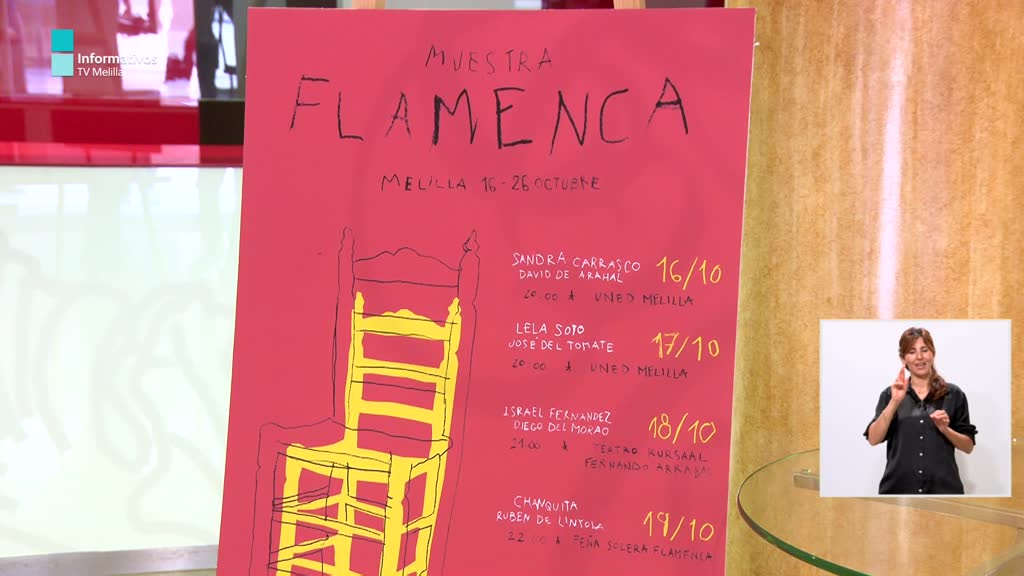 Informativos
TV Melilla
MUESTRA
FLAMENCA
MELILLA 16-26 OCTUBRE
SANDRA CARRASCO
DAVID DE ARAHAL
16/10
20:00 * UNED MELILLA
LELA SOTO
JOSÉ DEL TOMATE
17/10
20:00 * UNED MELILLA
ISRAEL FERNANDEZ
DIEGO DEL MORAO
18/10
21:00 * TEATRO KURSAAL
FERNANDO ARRABAL
CHANQUITA
RUBEN DE LINYOLA
19/10
22:00 * PEÑA SOLERA FLAMENCA